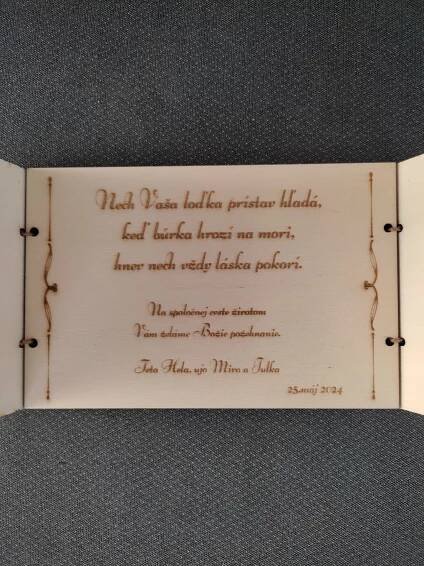 Nech Vaša loďka prístav hľadá,
keď búrka hrozí na mori,
hnev nech vždy láska pokorí.
Na spoločnej ceste životom
Vám želáme Božie požehnanie.
Teta Hela, ujo Miro a Tulka
25.máj 2024